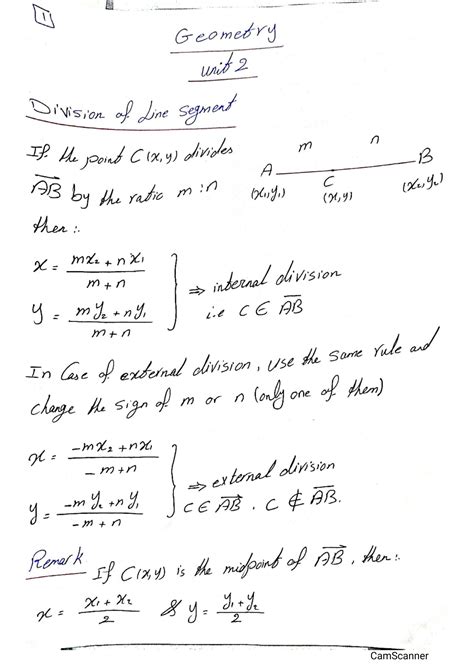 1
Geometry
unit 2
Division of Line Segment
If the point C(x,y) divides
AB by the ratio m:n
then :.
m n
A B
C
(x₁,y₁) (x,y) (x₂,y₂)
x = (mx₂ + nx₁)/(m+n)
y = (my₂ + ny₁)/(m+n)
⇒ internal division
i.e C ∈ AB
In Case of external division, use the same rule and
change the sign of m or n (only one of them)
x = (-mx₂ + nx₁)/(-m+n)
y = (-my₂ + ny₁)/(-m+n)
⇒ external division
C ∈ AB . C ∉ AB.
Remark If C(x,y) is the midpoint of AB, then :.
x = (x₁ + x₂)/2 & y = (y₁ + y₂)/2
CamScanner